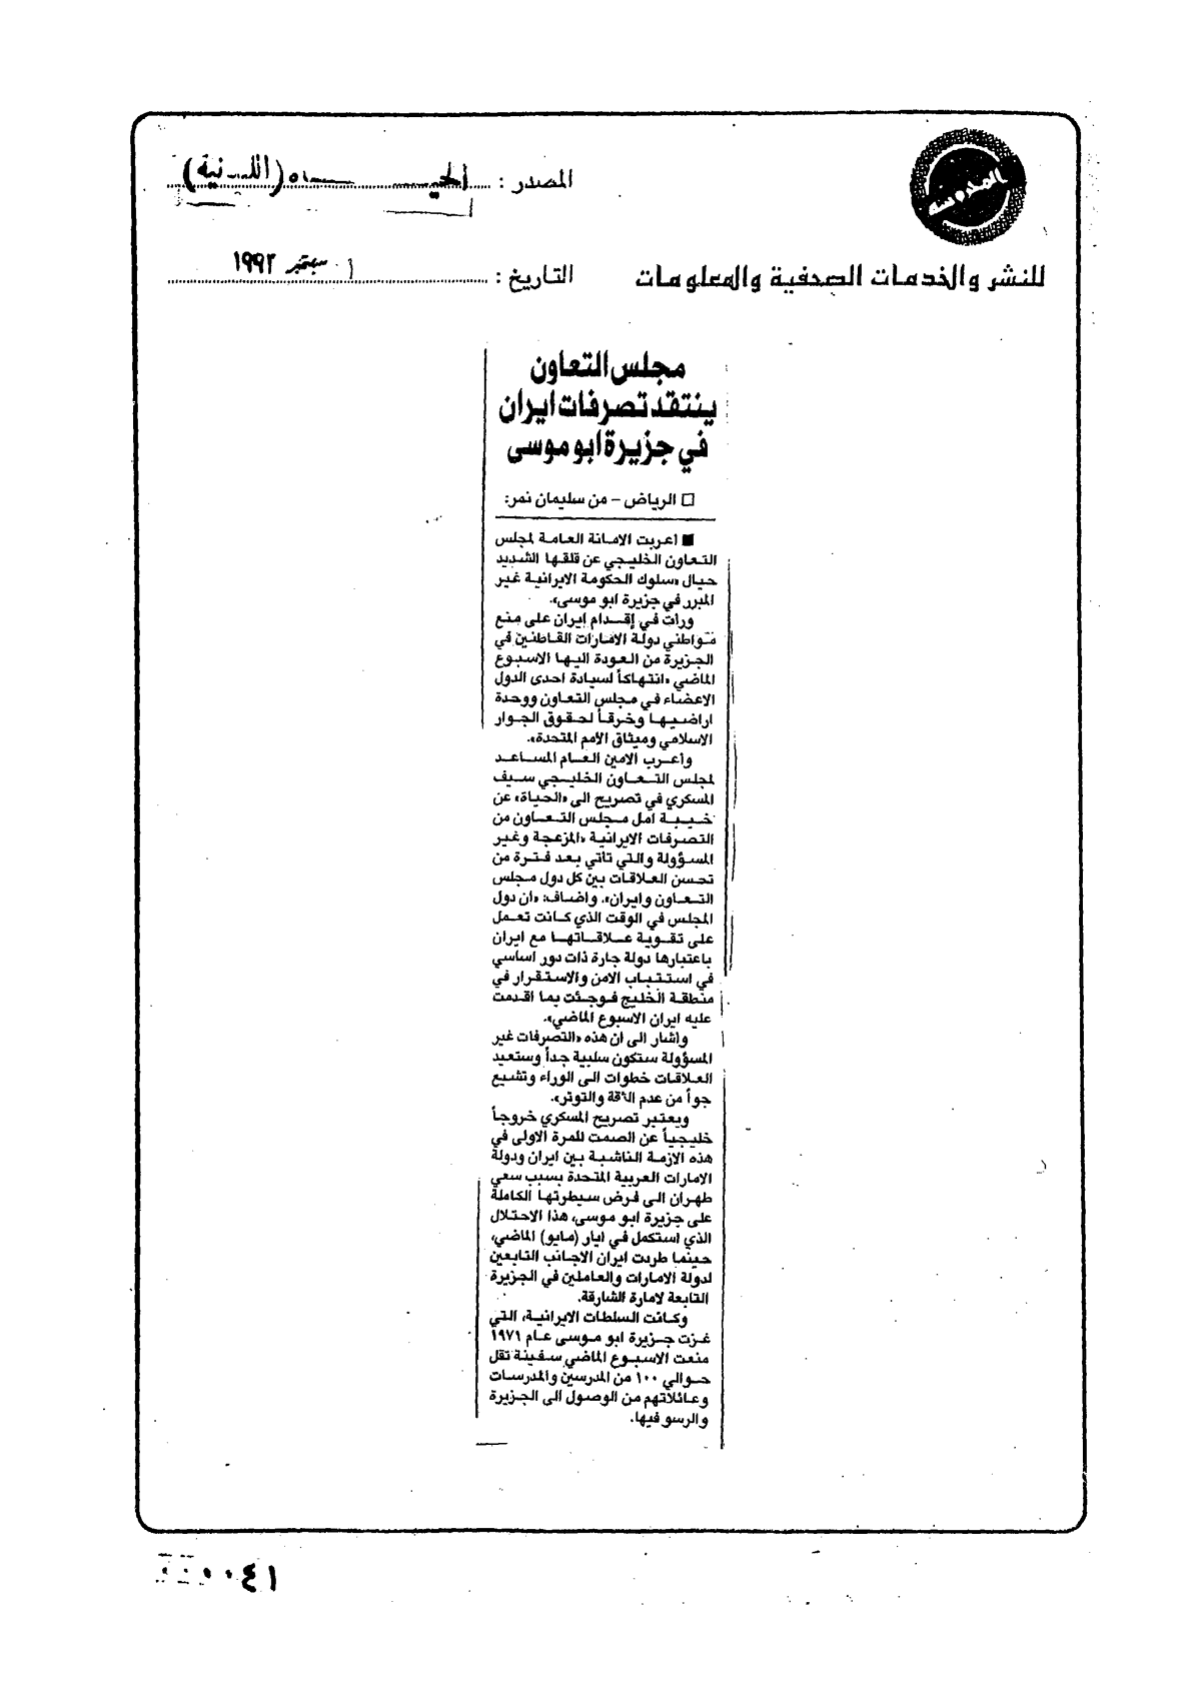 المحروسة
المصدر : الحيـــاه (اللندنية)
للنشر والخدمات الصحفية والمعلومات
التاريخ : ١ سبتمبر ١٩٩٢
مجلس التعاون
ينتقد تصرفات ايران
في جزيرة ابو موسى
□ الرياض – من سليمان نمر:
■ اعربت الامانة العامة لمجلس
التعاون الخليجي عن قلقها الشديد
حيال «سلوك الحكومة الايرانية غير
المبرر في جزيرة ابو موسى».
ورات في إقدام إيران على منع
مواطني دولة الامارات القاطنين في
الجزيرة من العودة اليها الاسبوع
الماضي «انتهاكاً لسيادة احدى الدول
الاعضاء في مجلس التعاون ووحدة
اراضيها وخرقاً لحقوق الجوار
الاسلامي وميثاق الأمم المتحدة».
وأعرب الامين العام المساعد
لمجلس التعاون الخليجي سيف
المسكري في تصريح الى «الحياة» عن
خيبة امل مجلس التعاون من
التصرفات الايرانية «المزعجة وغير
المسؤولة والتي تاتي بعد فترة من
تحسن العلاقات بين كل دول مجلس
التعاون وايران». واضاف: «ان دول
المجلس في الوقت الذي كانت تعمل
على تقوية علاقاتها مع ايران
باعتبارها دولة جارة ذات دور اساسي
في استتباب الامن والاستقرار في
منطقة الخليج فوجئت بما اقدمت
عليه ايران الاسبوع الماضي».
واشار الى ان هذه «التصرفات غير
المسؤولة ستكون سلبية جداً وستعيد
العلاقات خطوات الى الوراء وتشيع
جواً من عدم الثقة والتوتر».
ويعتبر تصريح المسكري خروجاً
خليجياً عن الصمت للمرة الاولى في
هذه الازمة الناشبة بين ايران ودولة
الامارات العربية المتحدة بسبب سعي
طهران الى فرض سيطرتها الكاملة
على جزيرة ابو موسى، هذا الاحتلال
الذي استكمل في ايار (مايو) الماضي،
حينما طردت ايران الاجانب التابعين
لدولة الامارات والعاملين في الجزيرة
التابعة لامارة الشارقة.
وكانت السلطات الايرانية، التي
غزت جزيرة ابو موسى عام ١٩٧١
منعت الاسبوع الماضي سفينة تقل
حوالي ١٠٠ من المدرسين والمدرسات
وعائلاتهم من الوصول الى الجزيرة
والرسو فيها.